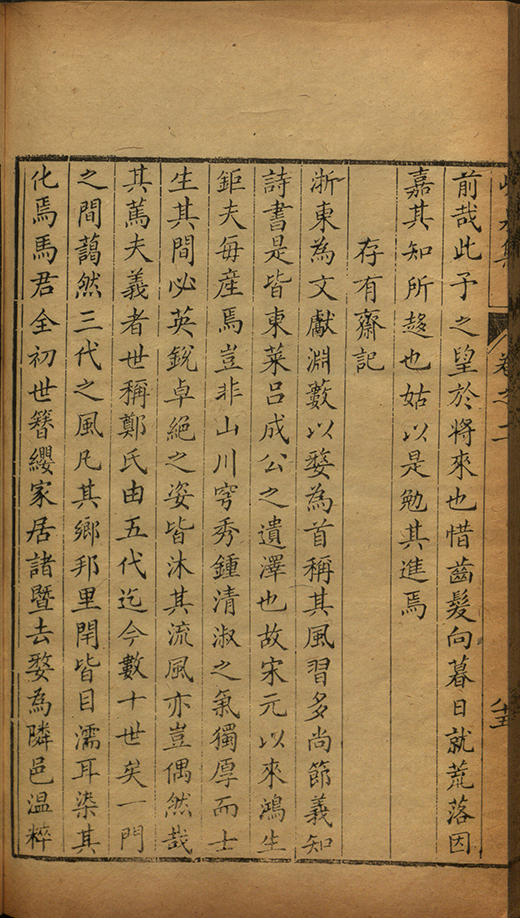 卷之二
前哉此予之望於將來也惜齒髮向暮日就荒落因
嘉其知所趍也姑以是勉其進焉
存有齋記
浙東為文獻淵藪以婺為首稱其風習多尚節義知
詩書是皆東萊吕成公之遺澤也故宋元以來鴻生
鉅夫每產焉豈非山川穹秀鍾清淑之氣獨厚而士
生其間必英銳卓絕之姿皆沐其流風亦豈偶然哉
其篤夫義者世稱鄭氏由五代迄今數十世矣一門
之間藹然三代之風凡其鄉邦里閈皆目濡耳染其
化焉馬君全初世簪纓家居諸暨去婺為隣邑温粹